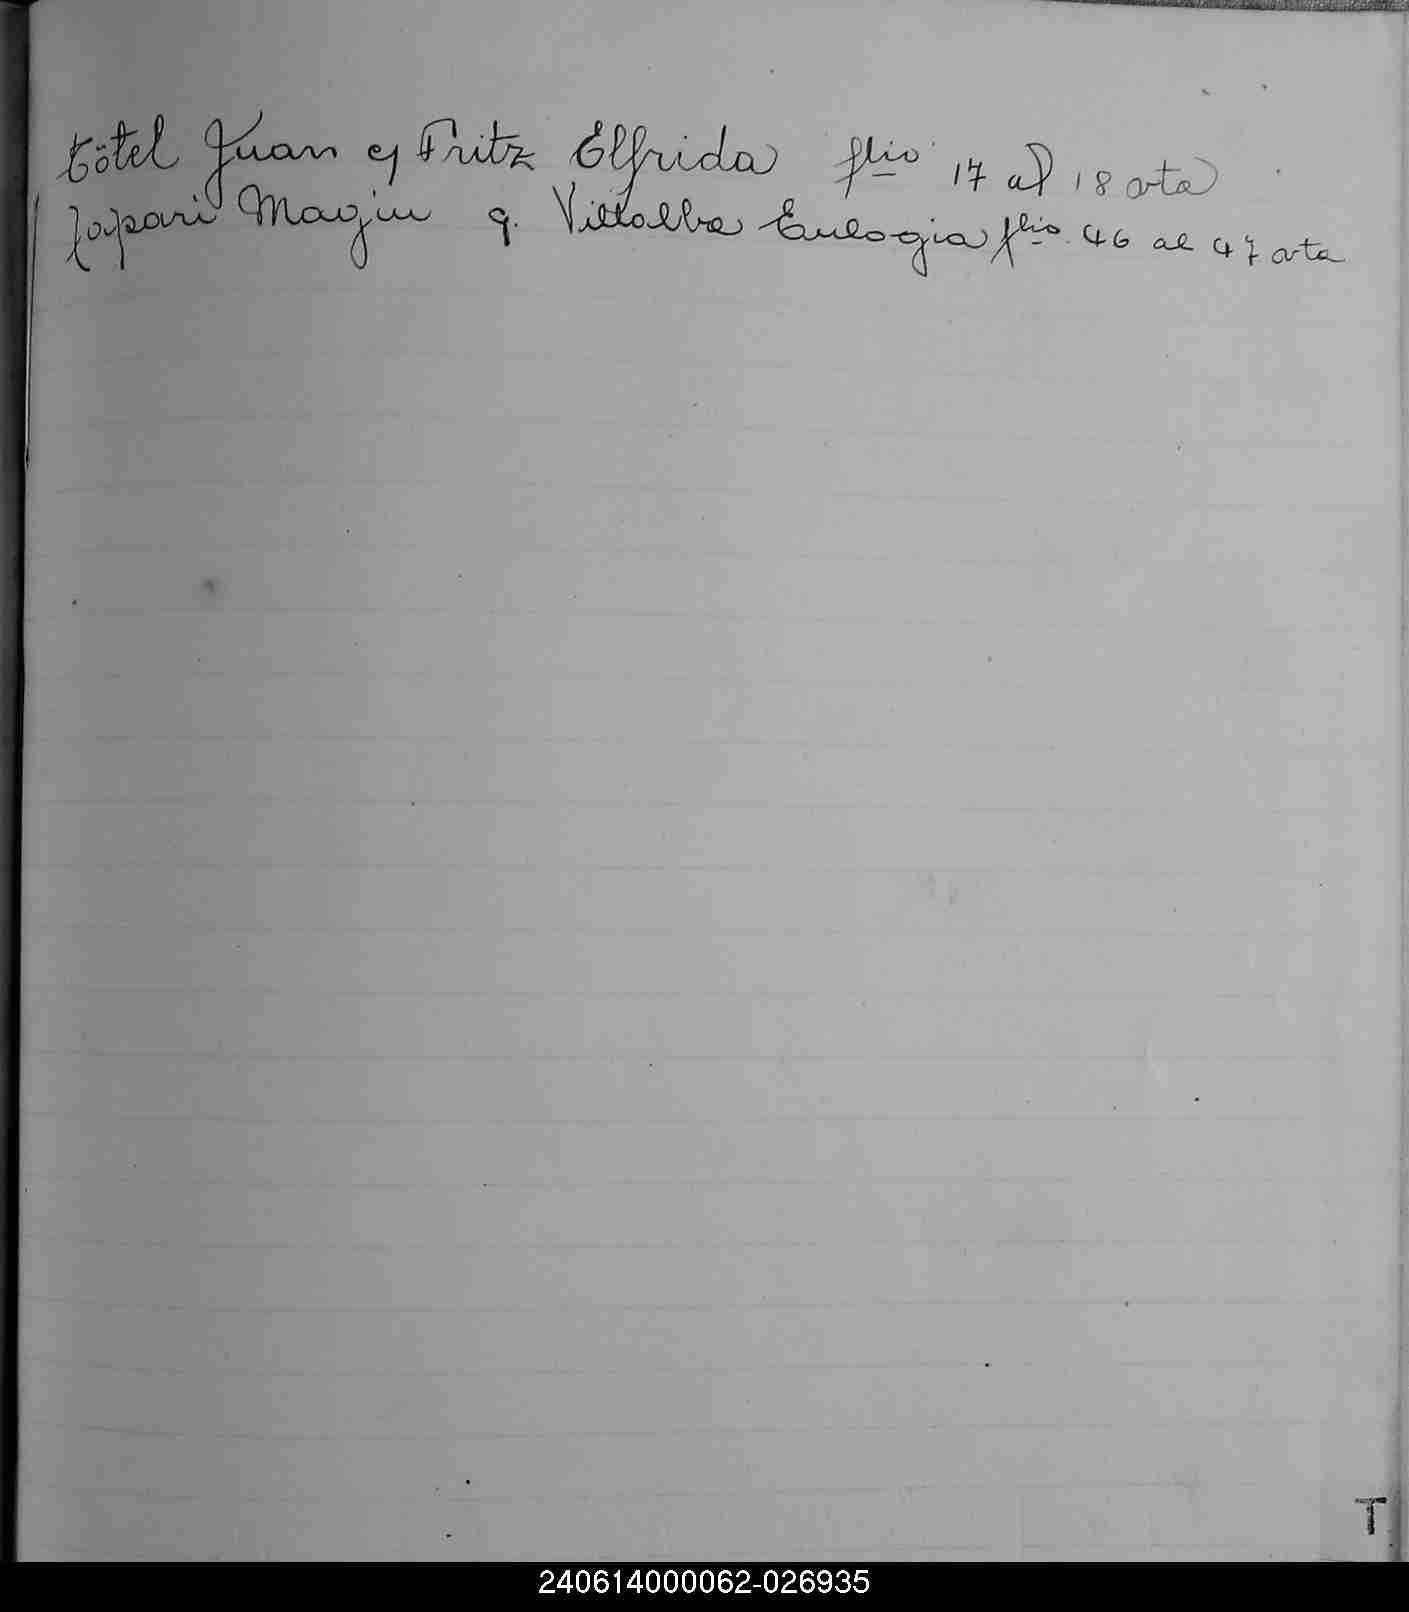 Tötel Juan y Fritz Elfrida flio 17 al 18 vta
Japari Magin y. Villalba Eulogia flio. 46 al 47 vta
T
240614000062-026935